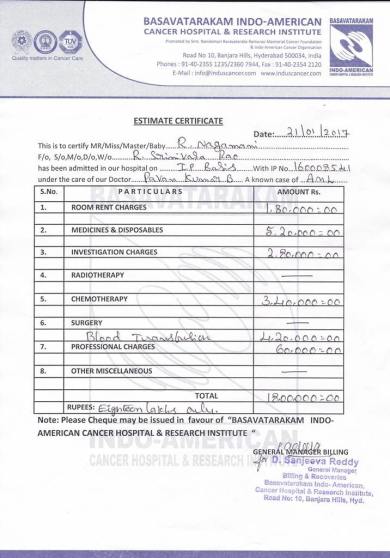 BASAVATARAKAM INDO-AMERICAN
CANCER HOSPITAL & RESEARCH INSTITUTE
Promoted by Smt. Nandamuri Basavataraka Ramarao Memorial Cancer Foundation
& Indo-American Cancer Organisation
Road No 10, Banjara Hills, Hyderabad 500034, India
Phones : 91-40-2355 1235/2360 7944, Fax : 91-40-2354 2120
E-Mail : info@induscancer.com www.induscancer.com
Quality matters in Cancer Care
TÜV
BASAVATARAKAM
INDO-AMERICAN
CANCER HOSPITAL & RESEARCH INSTITUTE
ESTIMATE CERTIFICATE
Date: 21/01/2017
This is to certify MR/Miss/Master/Baby R. Nagamani
F/o, S/o,M/o,D/o,W/o R. Srinivasa Rao
has been admitted in our hospital on I.P Basis With IP No
under the care of our Doctor Pavan Kumar B. A known case of AML
S.No. PARTICULARS AMOUNT Rs.
1. ROOM RENT CHARGES 1,80,000=00
2. MEDICINES & DISPOSABLES 5.20,000=00
3. INVESTIGATION CHARGES 2.80,000=00
4. RADIOTHERAPY —
5. CHEMOTHERAPY 3.40,000=00
6. SURGERY —
Blood Transfusion 4.20,000=00
7. PROFESSIONAL CHARGES 60,000=00
8. OTHER MISCELLANEOUS —
TOTAL 1800000=00
RUPEES: Eighteen Lakhs only.
Note: Please Cheque may be issued in favour of "BASAVATARAKAM INDO-
AMERICAN CANCER HOSPITAL & RESEARCH INSTITUTE "
BASAVATARAKAM
INDO-AMERICAN
CANCER HOSPITAL & RESEARCH INSTITUTE
GENERAL MANAGER BILLING
for D. Sanjeeva Reddy
General Manager,
Billing & Recoveries
Basavatarakam Indo- American,
Cancer Hospital & Research Institute,
Road No: 10, Banjara Hills, Hyd.